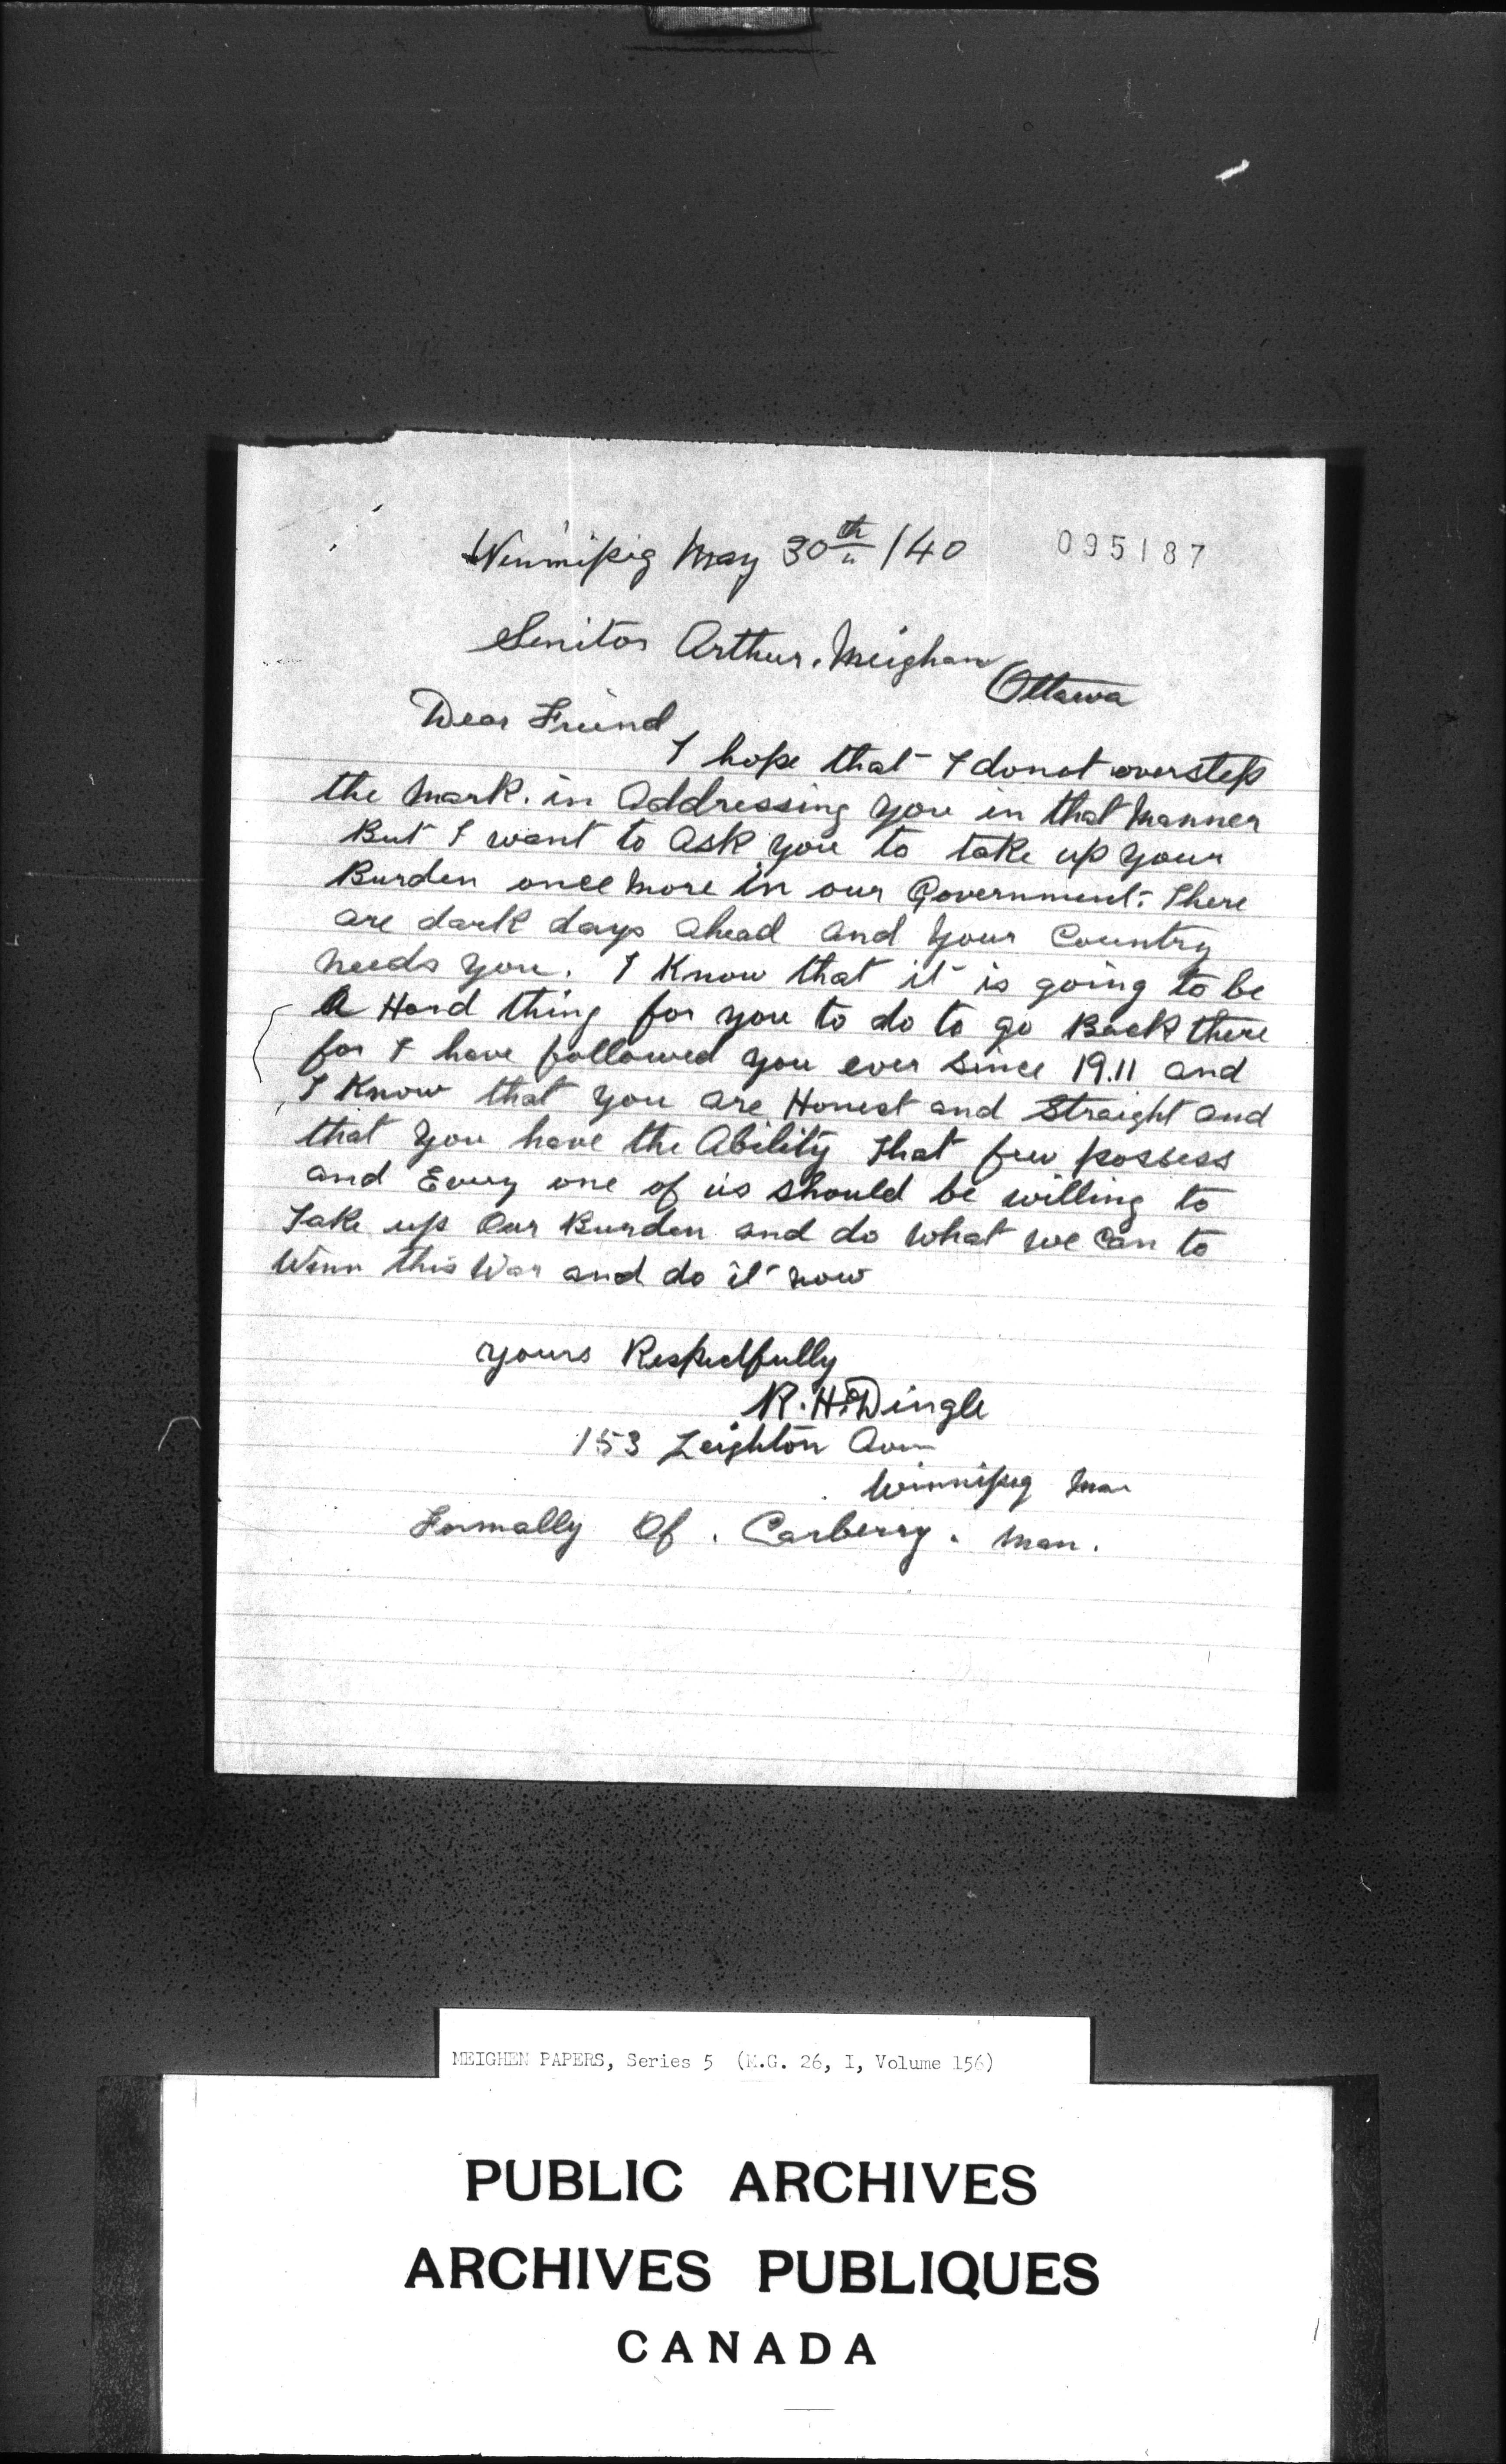 Winnipig May 30th /40
095187
Senitor Arthur. Meighan
Ottawa
Dear Friend
I hope that I donot overstep
the Mark. in Addressing you in that Manner
But I want to Ask you to take up your
Burden once More in our Government. There
are dark days ahead and your Country
needs you. I Know that it is going to be
A Hard thing for you to do to go Back there
for I have followed you ever since 19.11 and
I Know that you are Honest and Straight and
that you have the Ability that few possess
and Every one of us should be willing to
Take up Our Burden and do what we Can to
Winn this War and do it now
yours Respectfully
R. H. Dingle
153 Leighton Ave
Winnipeg Man
Formally Of. Carberry. Man.
MEIGHEN PAPERS, Series 5 (M.G. 26, I, Volume 156)
PUBLIC ARCHIVES
ARCHIVES PUBLIQUES
CANADA